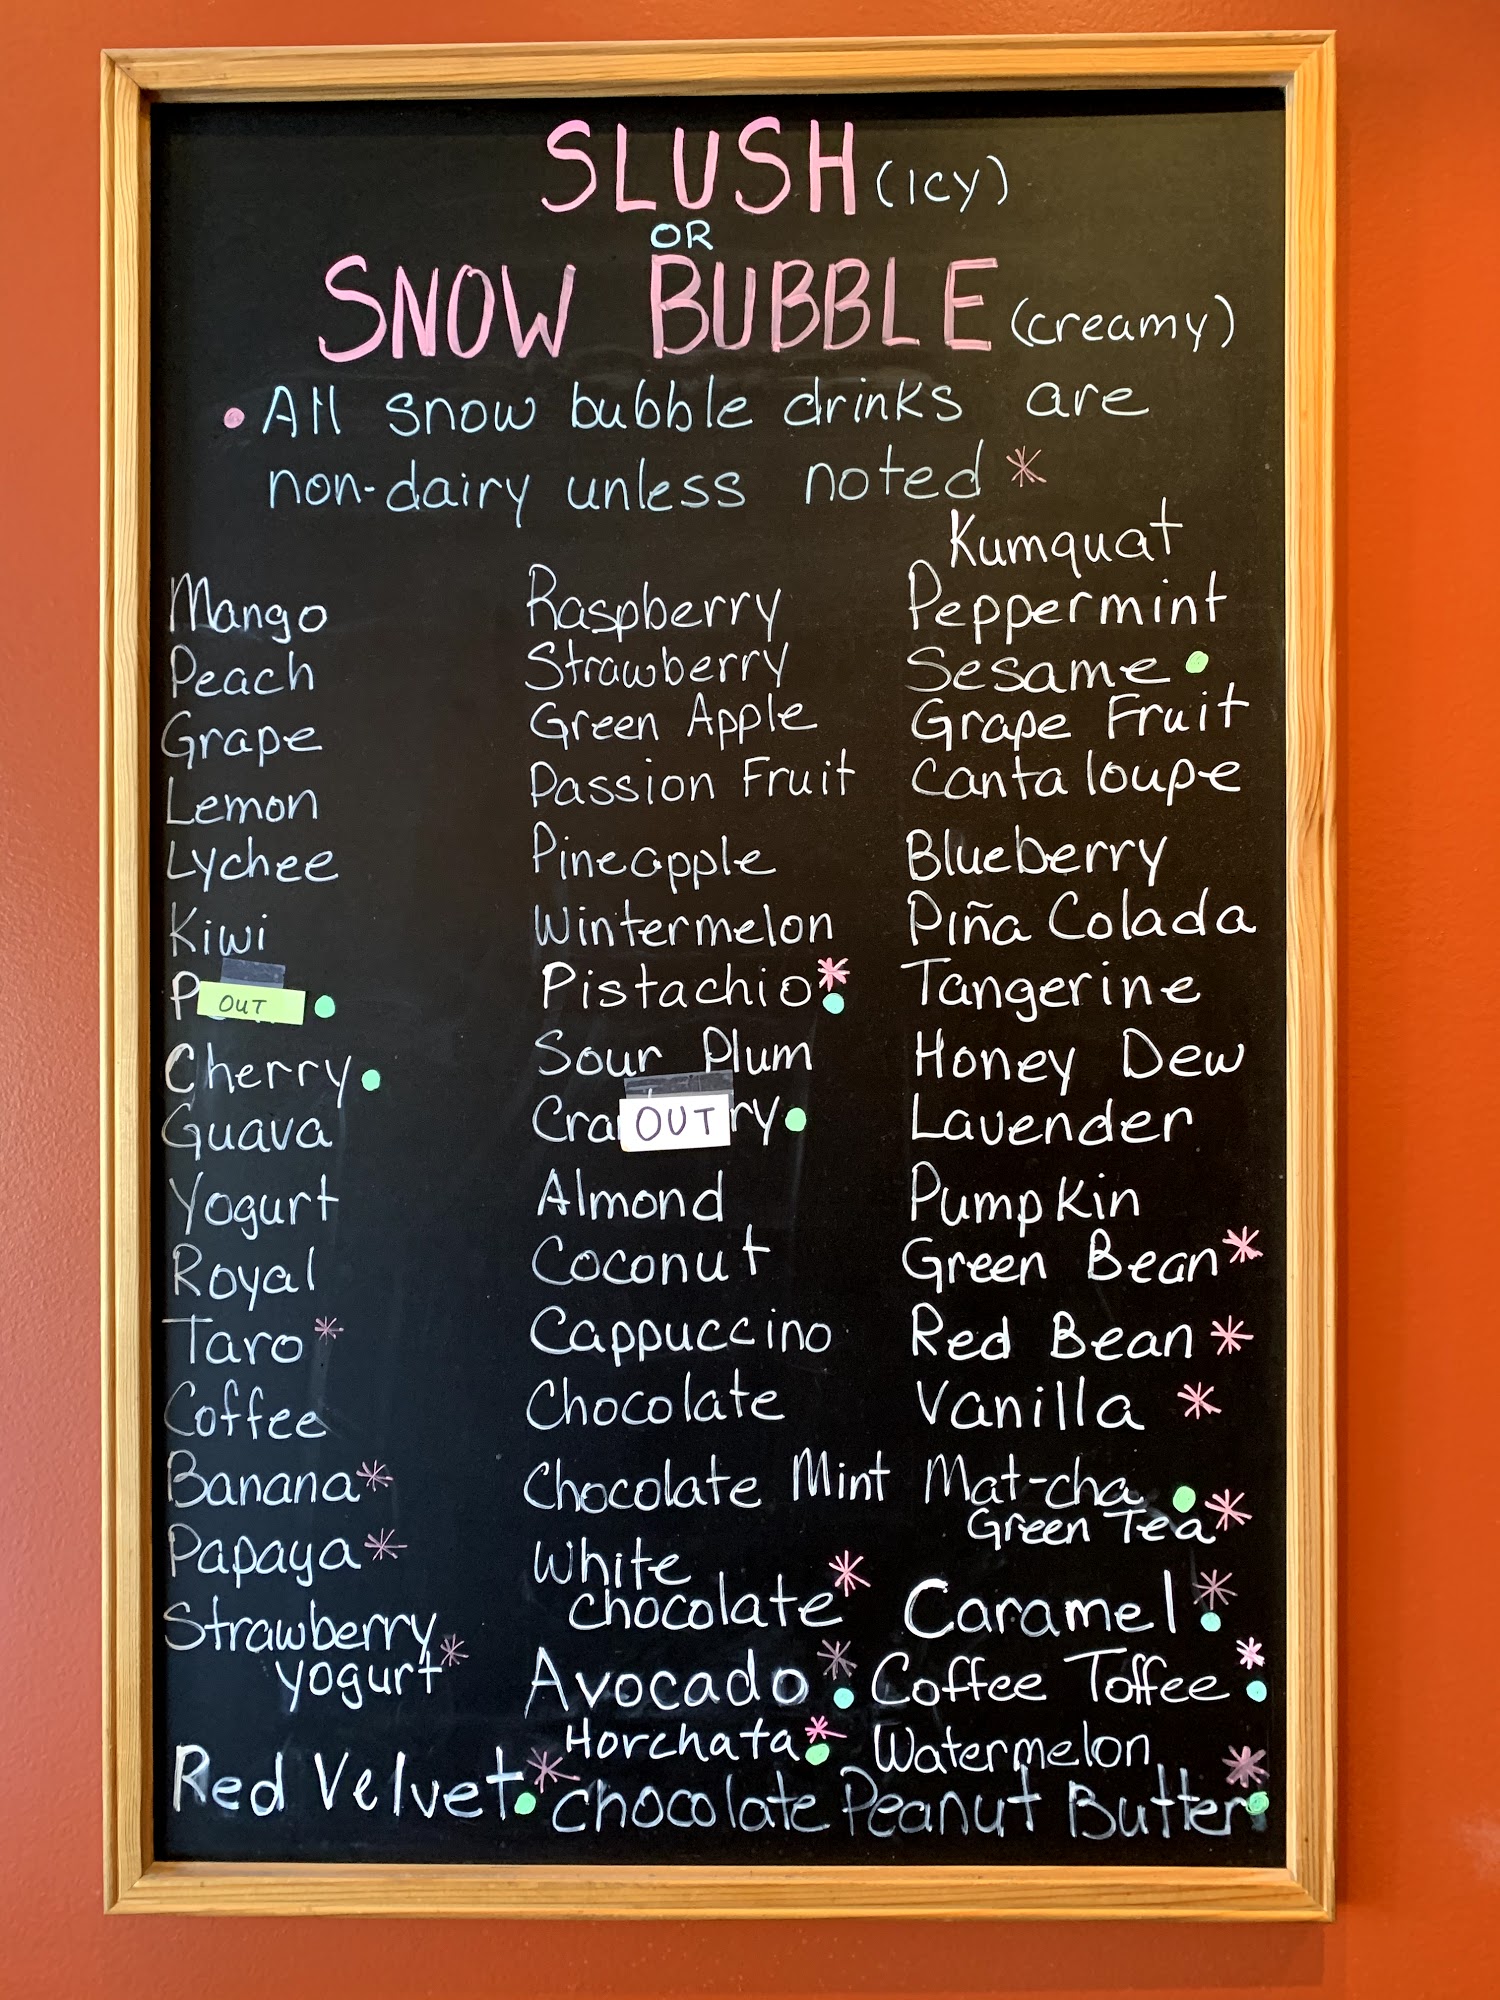 SLUSH (icy)
OR
SNOW BUBBLE (creamy)
• All snow bubble drinks are
non-dairy unless noted *
Mango
Peach
Grape
Lemon
Lychee
Kiwi
OUT
Cherry
Guava
Yogurt
Royal
Taro *
Coffee
Banana *
Papaya *
Strawberry
yogurt *
Red Velvet *
Raspberry
Strawberry
Green Apple
Passion Fruit
Pineapple
Wintermelon
Pistachio *
Sour Plum
OUT
Almond
Coconut
Cappuccino
Chocolate
Chocolate Mint
White
chocolate *
Avocado *
Horchata *
Kumquat
Peppermint
Sesame
Grape Fruit
Cantaloupe
Blueberry
Piña Colada
Tangerine
Honey Dew
Lavender
Pumpkin
Green Bean *
Red Bean *
Vanilla *
Mat-cha
Green Tea *
Caramel *
Coffee Toffee *
Watermelon
Chocolate Peanut Butter *